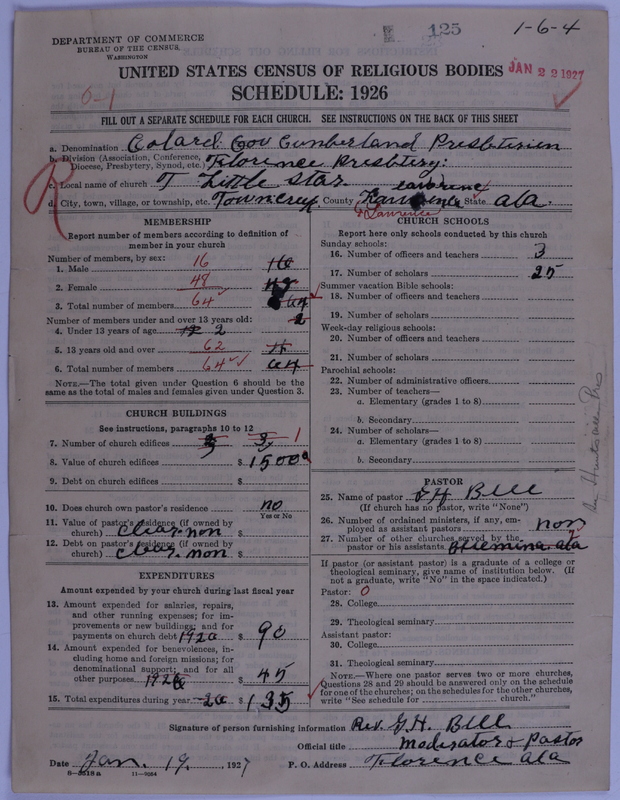 125
1-6-4
DEPARTMENT OF COMMERCE
BUREAU OF THE CENSUS
WASHINGTON
UNITED STATES CENSUS OF RELIGIOUS BODIES
JAN 22 1927
SCHEDULE: 1926
6-1
FILL OUT A SEPARATE SCHEDULE FOR EACH CHURCH. SEE INSTRUCTIONS ON THE BACK OF THIS SHEET
a. Denomination Colard Cumberland Presbyterian
b. Division (Association, Conference, Diocese, Presbytery, Synod, etc.) Florence Presbtery:
c. Local name of church Little Star
d. City, town, village, or township, etc. Towncreek County Lawrence State Ala
R
MEMBERSHIP
Report number of members according to definition of
member in your church
Number of members, by sex:
1. Male 16 16
2. Female 48 48
3. Total number of members 64 64
Number of members under and over 13 years old: 2
4. Under 13 years of age 12 2
5. 13 years old and over 62
6. Total number of members 64 64
NOTE.—The total given under Question 6 should be the
same as the total of males and females given under Question 3.
CHURCH BUILDINGS
See instructions, paragraphs 10 to 12
7. Number of church edifices 3 3 1
8. Value of church edifices $ 1500
9. Debt on church edifices $
10. Does church own pastor's residence no
Yes or No
11. Value of pastor's residence (if owned by
church) clear non $
12. Debt on pastor's residence (if owned by
church) clear non $
EXPENDITURES
Amount expended by your church during last fiscal year
13. Amount expended for salaries, repairs,
and other running expenses; for im-
provements or new buildings; and for
payments on church debt 1926 $ 90
14. Amount expended for benevolences, in-
cluding home and foreign missions; for
denominational support; and for all
other purposes 1926 $ 45
15. Total expenditures during year 26 $ 135
CHURCH SCHOOLS
Report here only schools conducted by this church
Sunday schools:
16. Number of officers and teachers 3
17. Number of scholars 25
Summer vacation Bible schools:
18. Number of officers and teachers
19. Number of scholars
Week-day religious schools:
20. Number of officers and teachers
21. Number of scholars
Parochial schools:
22. Number of administrative officers
23. Number of teachers—
a. Elementary (grades 1 to 8)
b. Secondary
24. Number of scholars—
a. Elementary (grades 1 to 8)
b. Secondary
PASTOR
25. Name of pastor G H Bell
(If church has no pastor, write "None")
26. Number of ordained ministers, if any, em-
ployed as assistant pastors non
27. Number of other churches served by the
pastor or his assistants ala
If pastor (or assistant pastor) is a graduate of a college or
theological seminary, give name of institution below. (If
not a graduate, write "No" in the space indicated.)
Pastor: 0
28. College
29. Theological seminary
Assistant pastor:
30. College
31. Theological seminary
NOTE.—Where one pastor serves two or more churches,
Questions 28 and 29 should be answered only on the schedule
for one of the churches; on the schedules for the other churches,
write "See schedule for church."
Signature of person furnishing information Rev. G. H. Bell
Official title Moderator & Pastor
Date Jan. 19, 1927 P. O. Address Florence Ala
8—3518a 11—9084